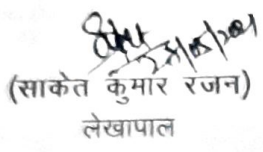 (साकेत कुमार रजन)
लेखापाल